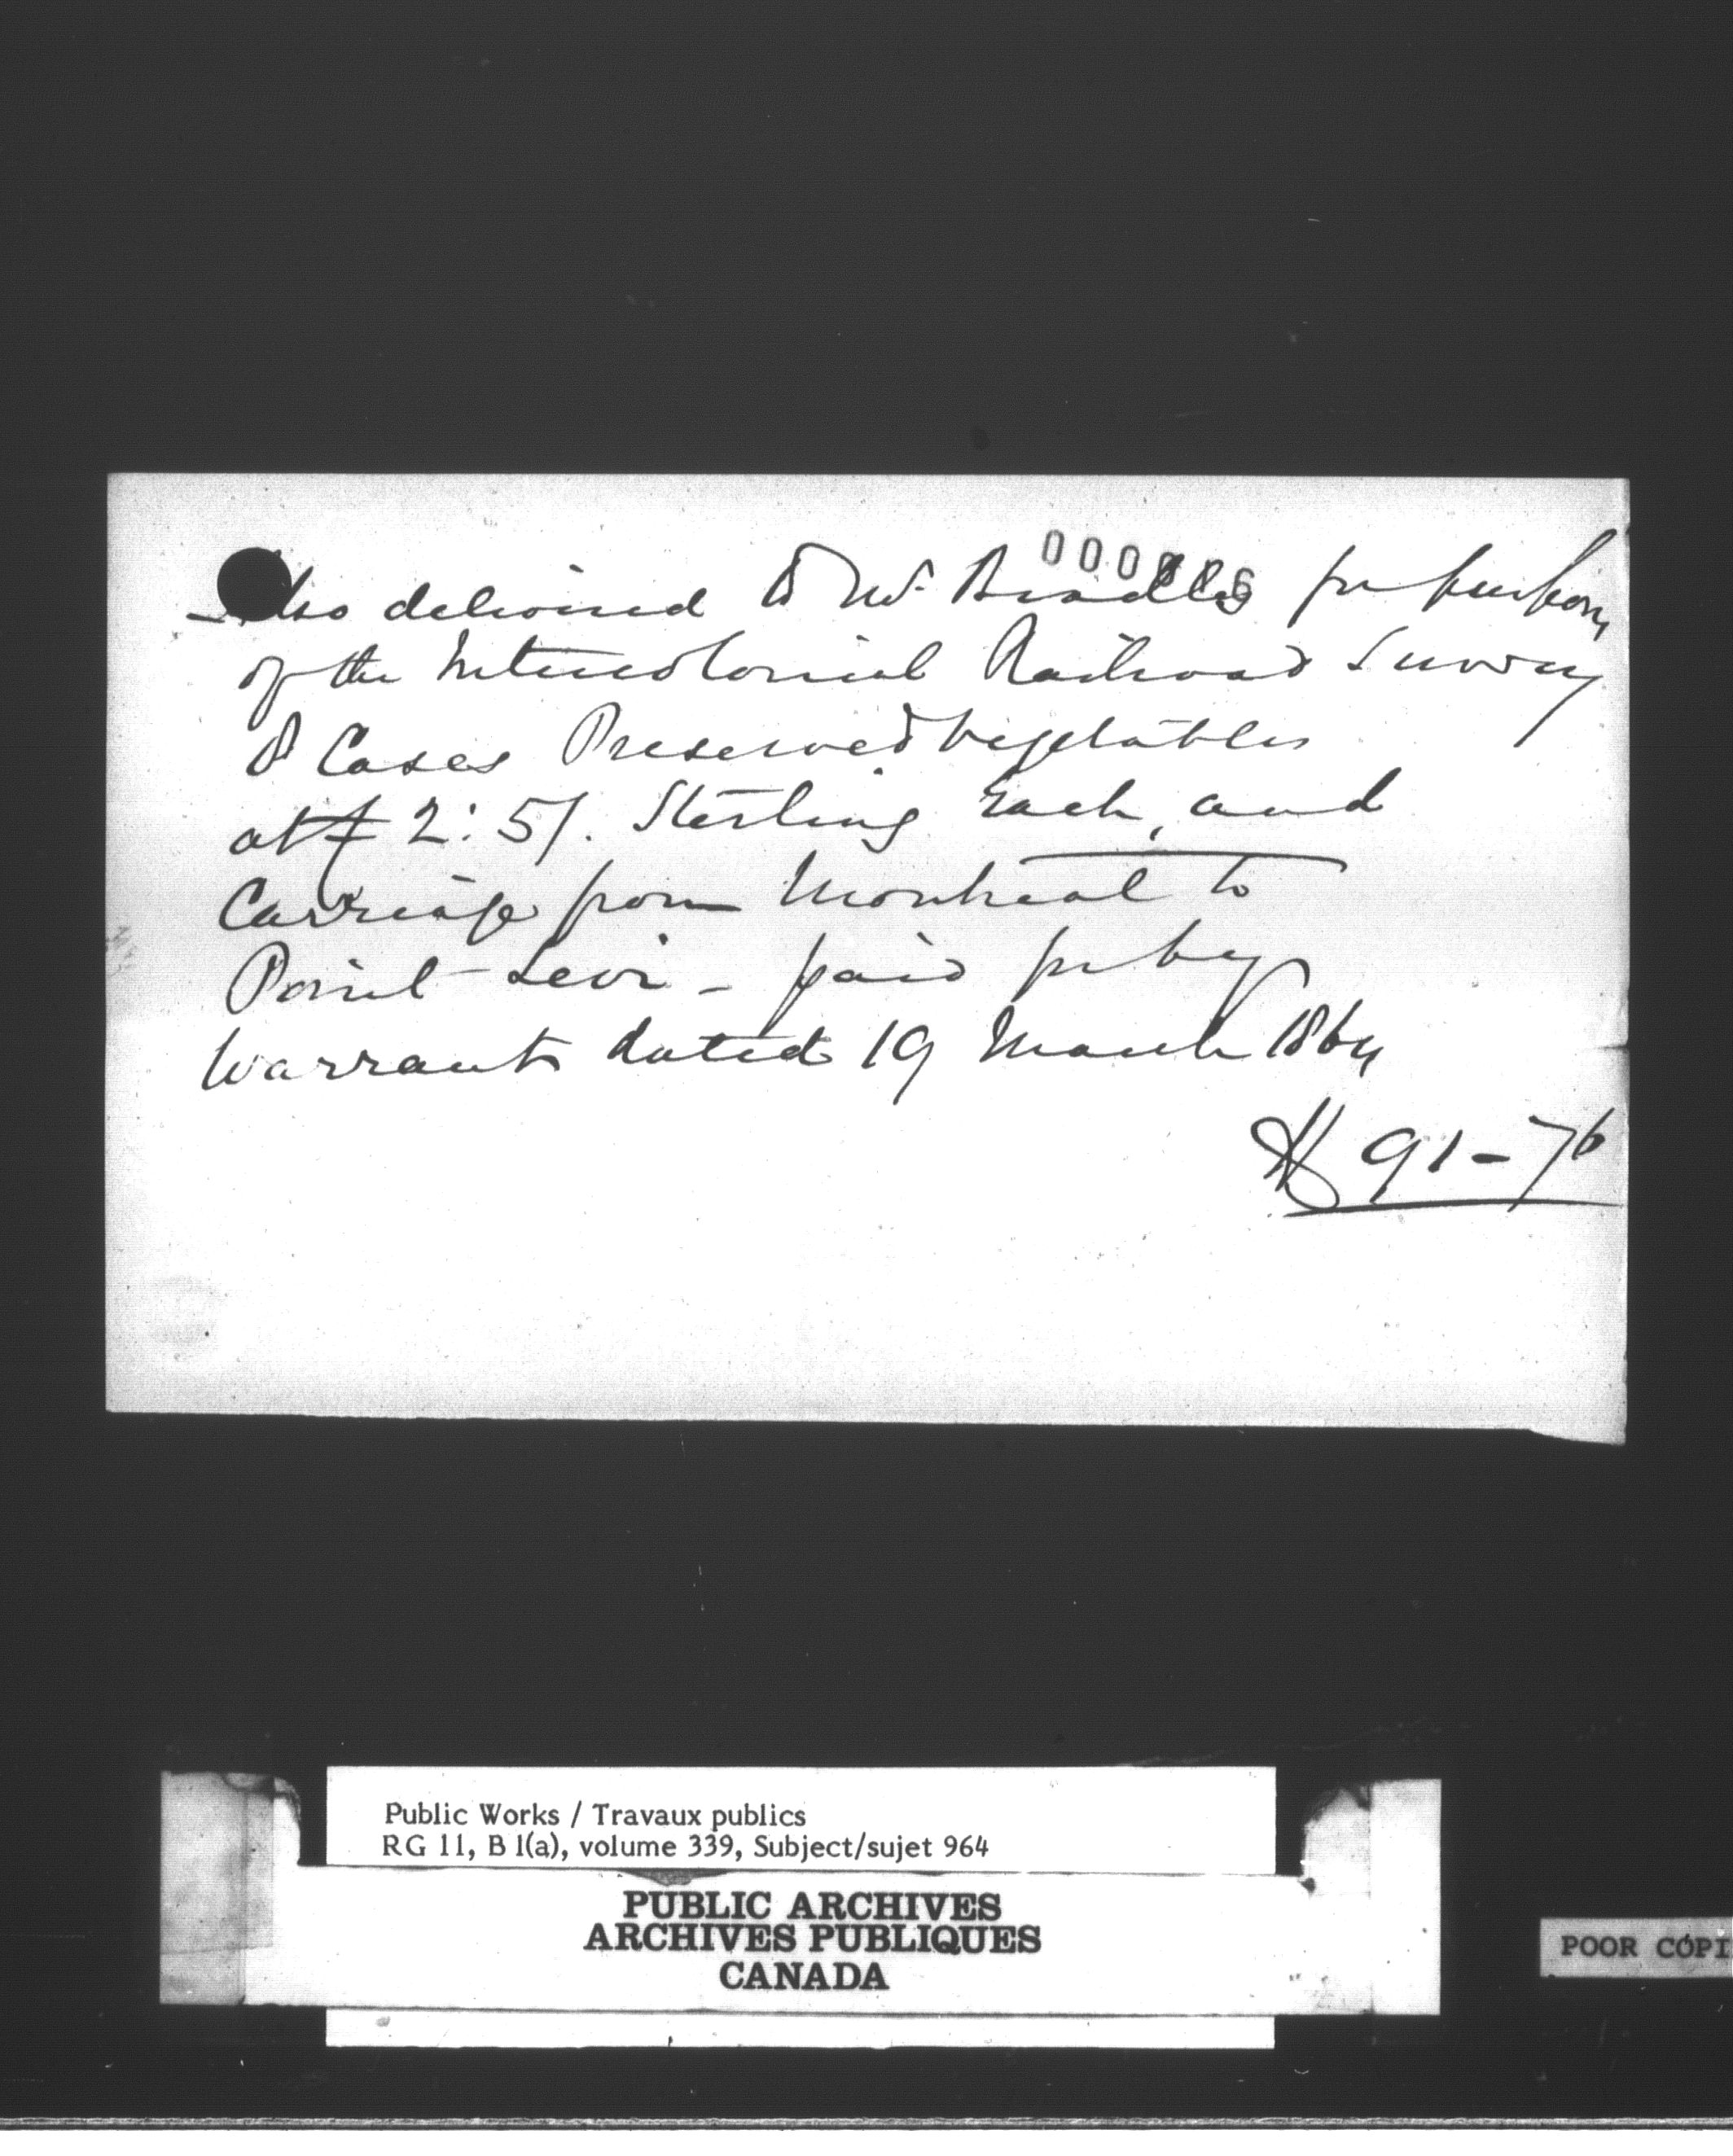 Also delivered to Mr. Bradley for purposes
of the Intercolonial Railroad Survey
8 Cases Preserved Vegetables
at £2:5/. Sterling Each, and
Carriage from Montreal to
Point-Levi - paid for by
Warrant dated 19 March 1864
$ 91-76
Public Works / Travaux publics
RG 11, B 1(a), volume 339, Subject/sujet 964
PUBLIC ARCHIVES
ARCHIVES PUBLIQUES
CANADA
POOR COPI